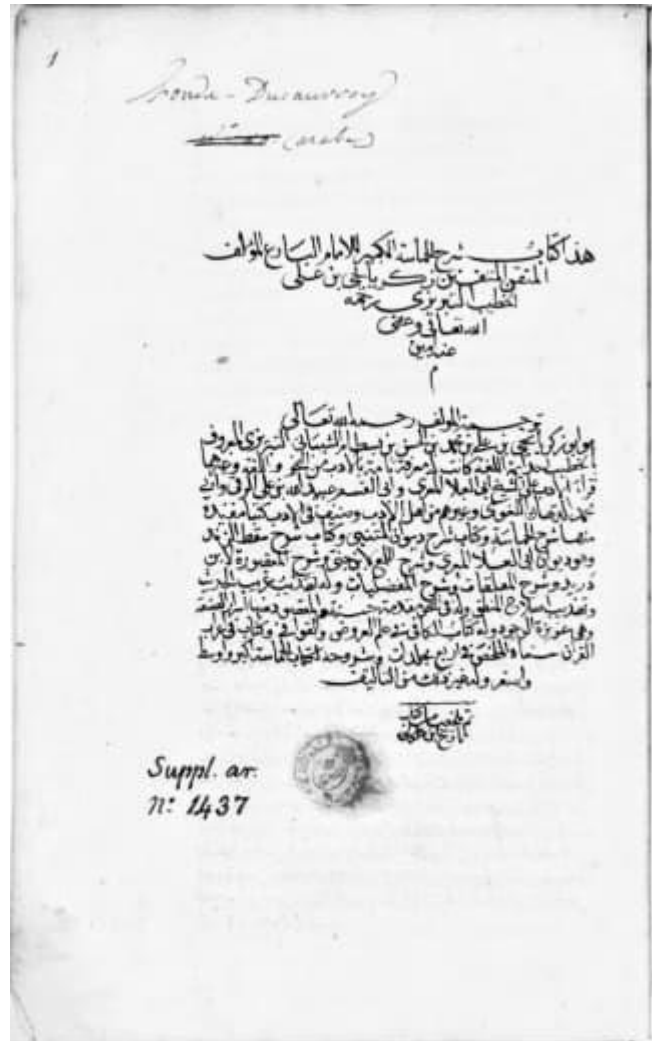 1
fonds - Ducaurroy
(arabe)
هذا كتاب شرح الحماسة الكبير للامام البارع المؤلف
المتقن المتفنن زكريا يحيى بن على
الخطيب التبريزى رحمه
الله تعالى وعفى
عنه
م
ترجمة المؤلف رحمه الله تعالى
هو ابو زكريا يحيى بن على بن محمد بن الحسن بن بسطام الشيبانى التبريزى المعروف
بالخطيب ائمة اللغة كانت له معرفة تامة بالادب من النحو واللغة وغيرهما
قرأ الادب على الشيخ ابى العلا المعرى وابى القسم عبيد الله بن على الرقى وابى
محمد الدهان اللغوى وغيرهم من اهل الادب وصنف فى الادب كتبا مفيدة
منها شرح الحماسة وكتاب شرح ديوان المتنبى وكتاب شرح سقط الزند
وهو ديوان ابى العلا المعرى وشرح اللمع لابن جنى وشرح المقصورة لابن
دريد وشرح المعلقات وشرح المفضليات وله تهذيب غريب الحديث
وتهذيب اصلاح المنطق وله فى النحو مقدمة حسنة والمقصود منها اسرار الصنعة
وهى عزيزة الوجود وله كتاب الكافى فى علم العروض والقوافى وكتاب فى اعراب
القرآن سماه الملخص فى اربع مجلدات وشروحه لكتاب الحماسة اكبر واوسط
واصغر وله غير ذلك من التأليف
تاريخ ابن خلكان
Suppl. ar.
Nº 1437